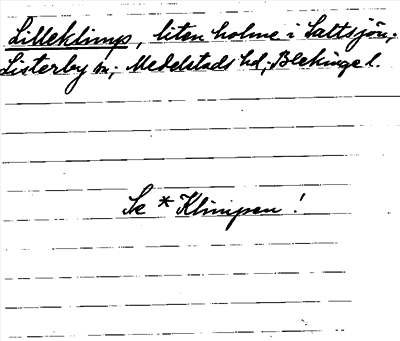 Lilleklimp, liten holme i Saltsjön;
Listerby sn; Medelstads hd; Blekinge l.
Se * Klimpen !